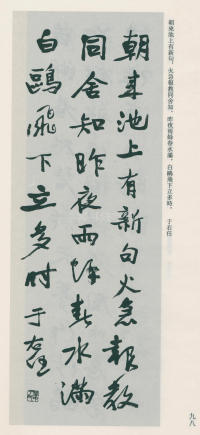 朝来池上有新句火急報教
同舍知昨夜雨餘春水滿
白鷗飛下立多時于右任
朝來池上有新句，火急報教同舍知，昨夜雨餘春水滿，白鷗飛下立多時。 于右任
九八